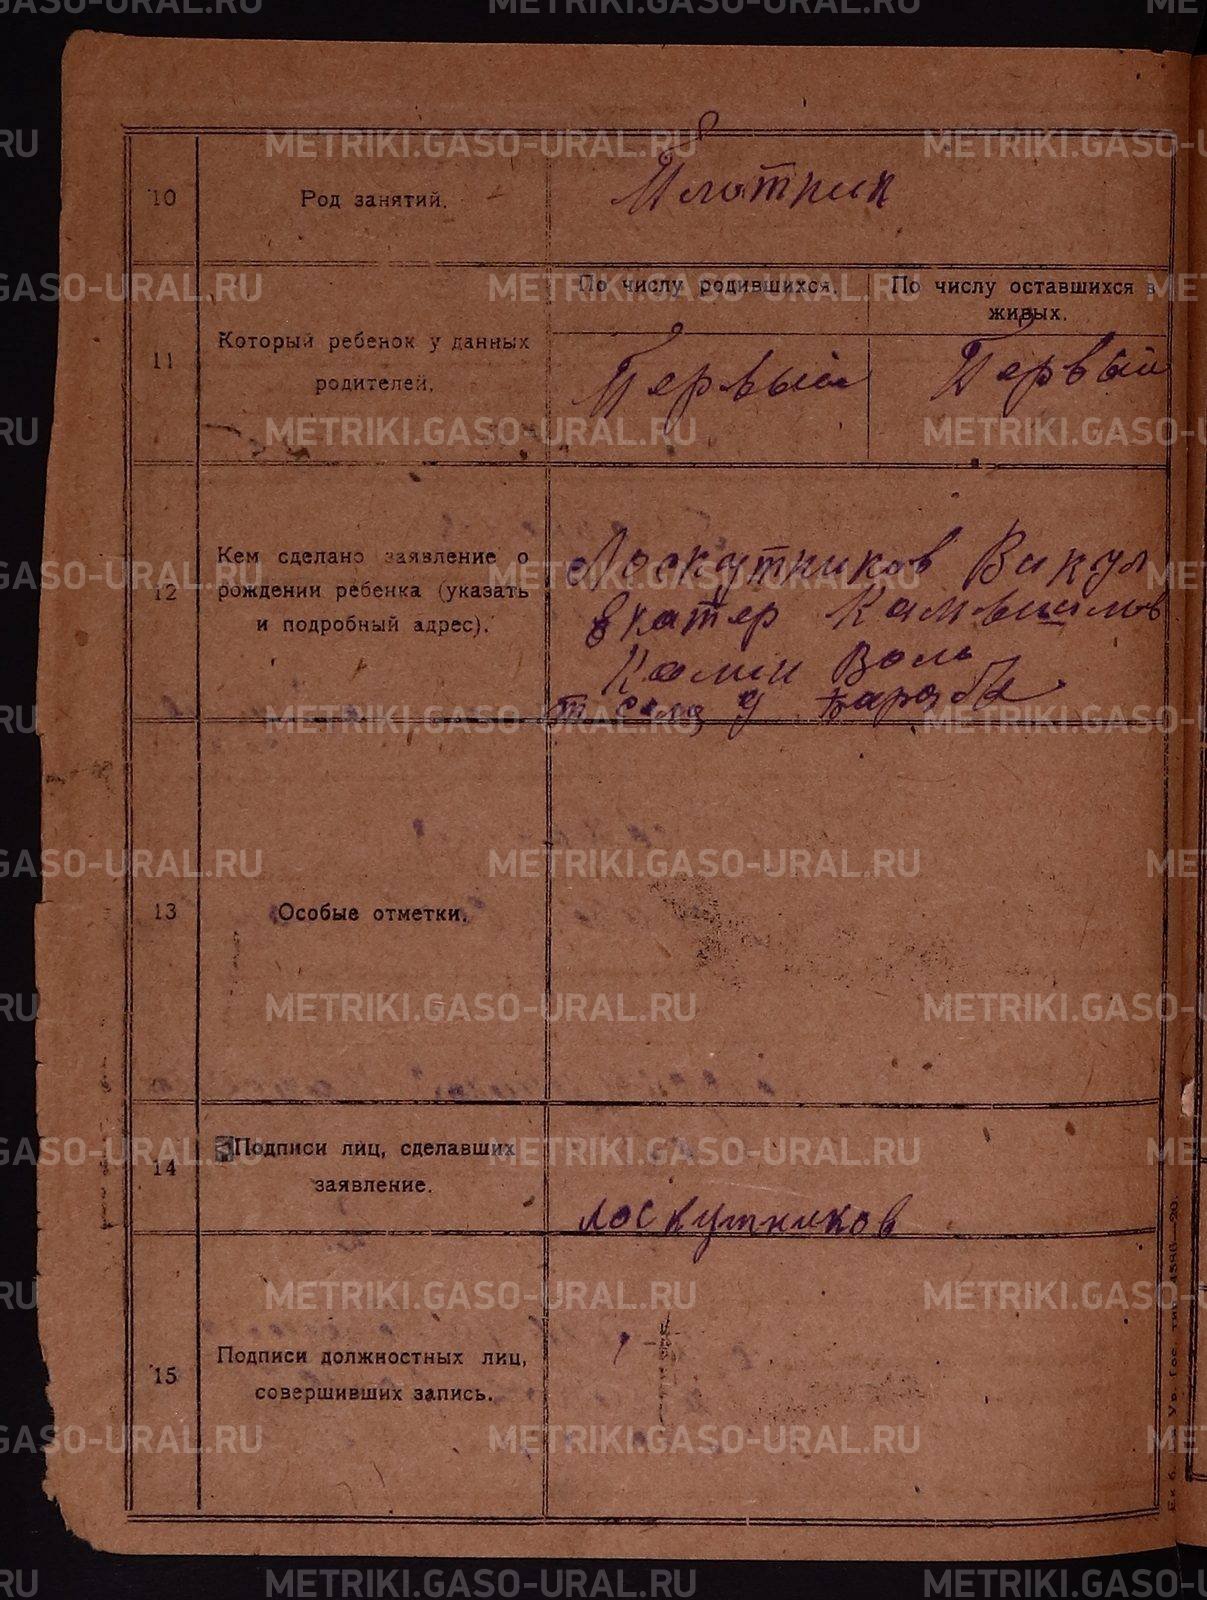 METRIKI.GASO-URAL.RU
10
Род занятий.
Плотник
11
Который ребенок у данных
родителей.
По числу родившихся.
По числу оставшихся в
живых.
Первый
Первый
12
Кем сделано заявление о
рождении ребенка (указать
и подробный адрес).
Лоскутников Викул
Екатер Камышлов
Вол
села
13
Особые отметки.
14
Подписи лиц, сделавших
заявление.
Лоскутников
15
Подписи должностных лиц,
совершивших запись.